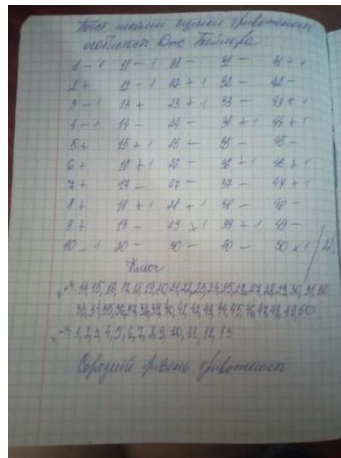 Тест шкали оцінки тривожності
особистості Дж. Тейлора
1 – 1 11 – 1 21 – 31 – 41 + 1
2 + 12 – 1 22 + 1 32 – 42 –
3 – 1 13 + 23 + 1 33 – 43 + 1
4 – 1 14 – 24 – 34 + 1 44 + 1
5 + 15 + 1 25 – 35 – 45 –
6 + 16 + 1 26 – 36 + 1 46 + 1
7 + 17 – 27 – 37 – 47 + 1
8 + 18 + 1 28 + 1 38 – 48 –
9 + 19 – 29 + 1 39 + 1 49 –
10 – 1 20 – 30 – 40 – 50 + 1
Ключ
"+" 14, 15, 16, 17, 18, 19, 20, 21, 22, 23, 24, 25, 26, 27, 28, 29, 30, 31, 32
33, 34, 35, 36, 37, 38, 39, 40, 41, 42, 43, 44, 45, 46, 47, 48, 49, 50
"–" 1, 2, 3, 4, 5, 6, 7, 8, 9, 10, 11, 12, 13
Середній рівень тривожності